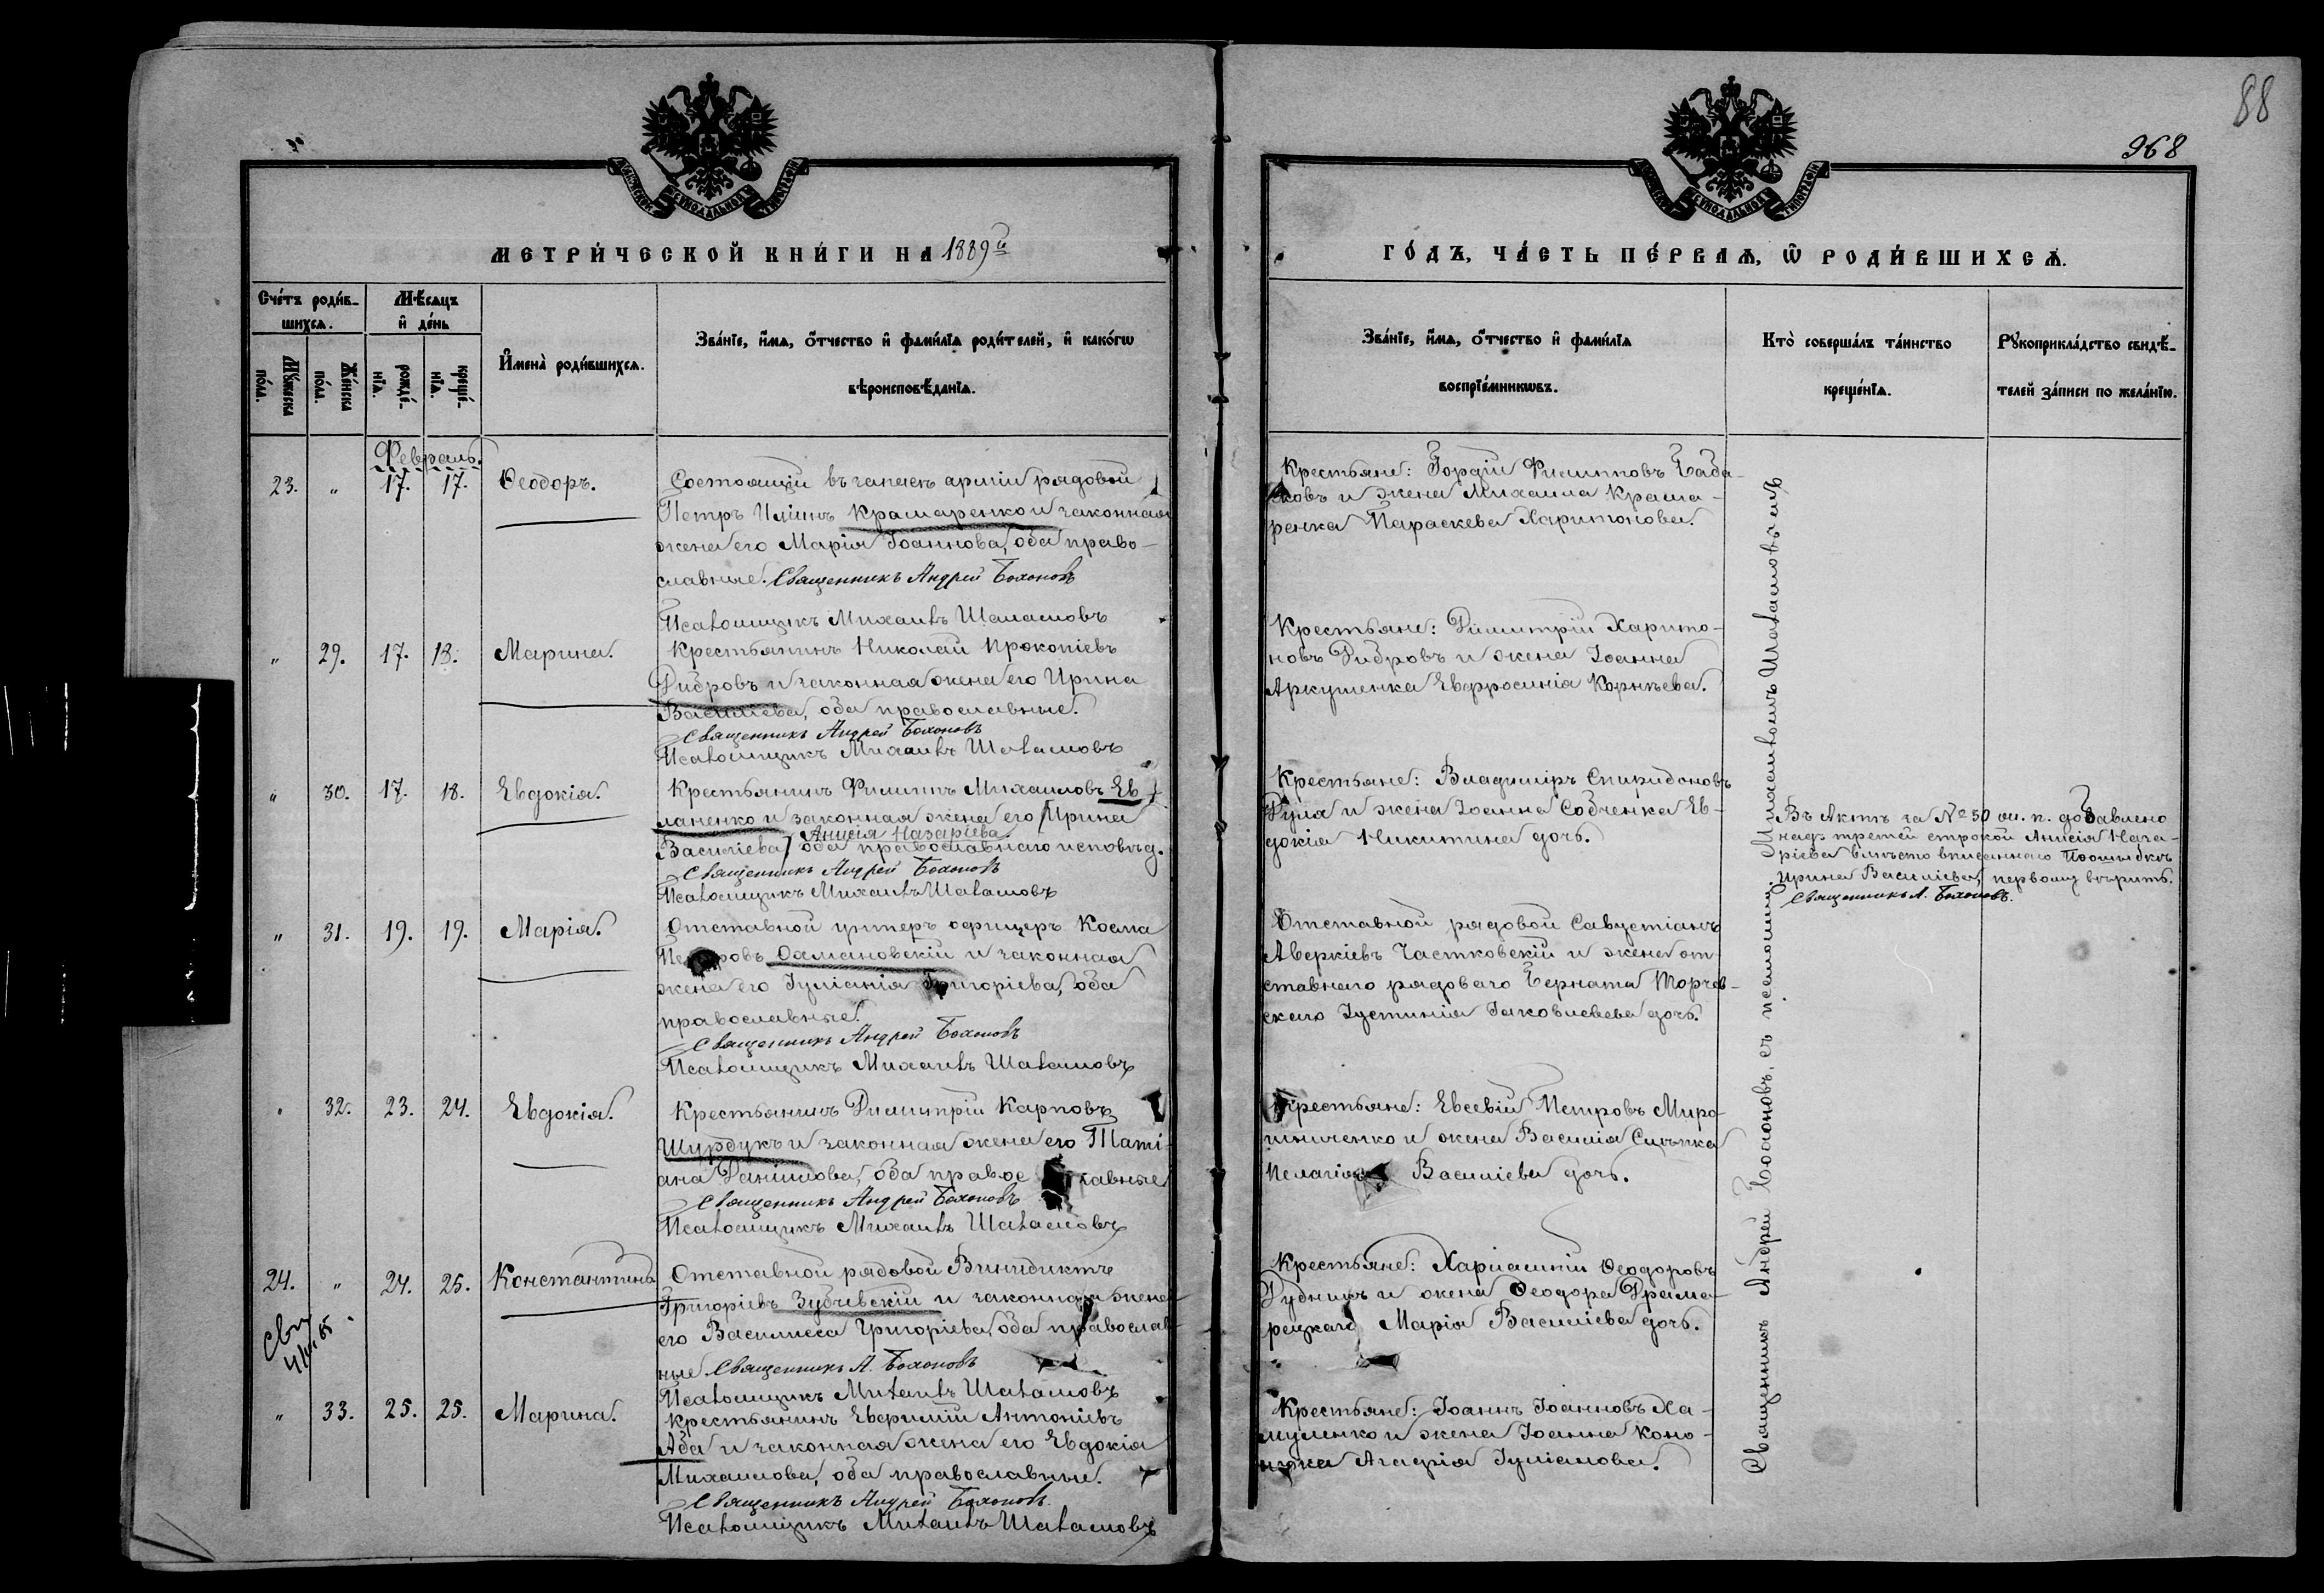 88
968
МЕТРИ́ЧЕСКОЙ КНИ́ГИ НА 1889й
ГО́ДЪ, ЧА́СТЬ ПЕ́РВАѦ, Ѿ РОДИ́ВШИХСѦ.
Сче́тъ роди́в-
шихсѧ.
Мѣ́сѧцъ
и҆ де́нь
Мꙋ́жеска
по́ла.
Же́нска
по́ла.
рожде́-
нїѧ.
креще́-
нїѧ.
И҆мена̀ роди́вшихсѧ.
Зва́нїе, и҆́мѧ, ѻ҆́тчество и҆ фами́лїѧ роди́телей, и҆ како́гѡ
вѣроисповѣ́данїѧ.
Зва́нїе, и҆́мѧ, ѻ҆́тчество и҆ фами́лїѧ
воспрїе́мникѡвъ.
Кто̀ соверша́лъ та́инство
креще́нїѧ.
Рꙋкоприкла́дство свидѣ́-
телей за́писи по жела́нїю.
Февраль.
23. " 17. 17. Ѳеодоръ.
Состоящій въ запасѣ арміи рядовой
Петръ Иліинъ Крамаренко и законная
жена его Марія Іоаннова, оба право-
славные. Священникъ Андрей Бохоновъ
Псаломщикъ Михаилъ Шаламовъ
Крестьяне: Гордій Филипповъ
и жена Михаила Крама-
ренка Параскева Харитонова.
" 29. 17. 18. Марина.
Крестьянинъ Николай Прокопіевъ
Дибровъ и законная жена его Ирина
Василіева, оба православные.
Священникъ Андрей Бохоновъ
Псаломщикъ Михаилъ Шаламовъ
Крестьяне: Димитрій Харито-
новъ Дибровъ и жена Іоанна
Аркушенка Евфросинія Корнѣева.
" 30. 17. 18. Евдокія.
Крестьянинъ Филиппъ Михаиловъ Ев-
ланенко и законная жена его (Ирина
Анисія Назаріева
Василіева) оба православнаго исповѣд.
Священникъ Андрей Бохоновъ
Псаломщикъ Михаилъ Шаламовъ
Крестьяне: Владиміръ Спиридоновъ
Дуля и жена Іоанна Собченка Ев-
докія Никитина дочь.
Въ Актѣ за № 30 ж. п. добавлено
надъ третей строкой Анисія Наза-
ріева вмѣсто вписаннаго по ошибкѣ
Ирина Василіева, первому вѣрить.
Священникъ А. Бохоновъ.
" 31. 19. 19. Марія.
Отставной унтеръ офицеръ Косма
Османовскій и законная
жена его Іуліанія Григоріева, оба
православные.
Священникъ Андрей Бохоновъ
Псаломщикъ Михаилъ Шаламовъ
Отставной рядовой Савустіанъ
Аверкіевъ Частковскій и жена от-
ставнаго рядоваго Берната Торчев-
скаго Іустинія Іаковлевева дочь.
32. 23. 24. Евдокія.
Крестьянинъ Димитрій Карповъ
Шурдукъ и законная жена его Таті-
ана Даніилова, оба православные
Священникъ Андрей Бохоновъ
Псаломщикъ Михаилъ Шаламовъ
Крестьяне: Евсевій Петровъ Миро-
шниченко и жена Василія
Пелагія Василіева дочь.
24. " 24. 25. Константинъ
Отставной рядовой Винидиктъ
Григоріевъ Зубчевскій и законная жена
его Василисса Григоріева, оба православ-
ные Священникъ А. Бохоновъ
Псаломщикъ Михаилъ Шаламовъ
Крестьяне: Харлампій Ѳеодоровъ
Рудникъ и жена Ѳеодора Драма-
рецкаго Марія Василіева дочь.
" 33. 25. 25. Марина.
Крестьянинъ Евфимій Антоніевъ
Аба и законная жена его Евдокія
Михаилова, оба православные.
Священникъ Андрей Бохоновъ.
Псаломщикъ Михаилъ Шаламовъ
Крестьяне: Іоаннъ Іоанновъ Ха-
муленко и жена Іоанна Коно-
Агафія Іуліанова.
Священникъ Андрей Бохоновъ, съ псаломщ. Михаиломъ Шаламовымъ